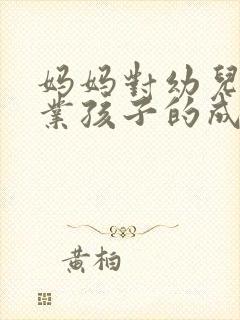 妈妈對幼兒
業孩子的成
黄柏